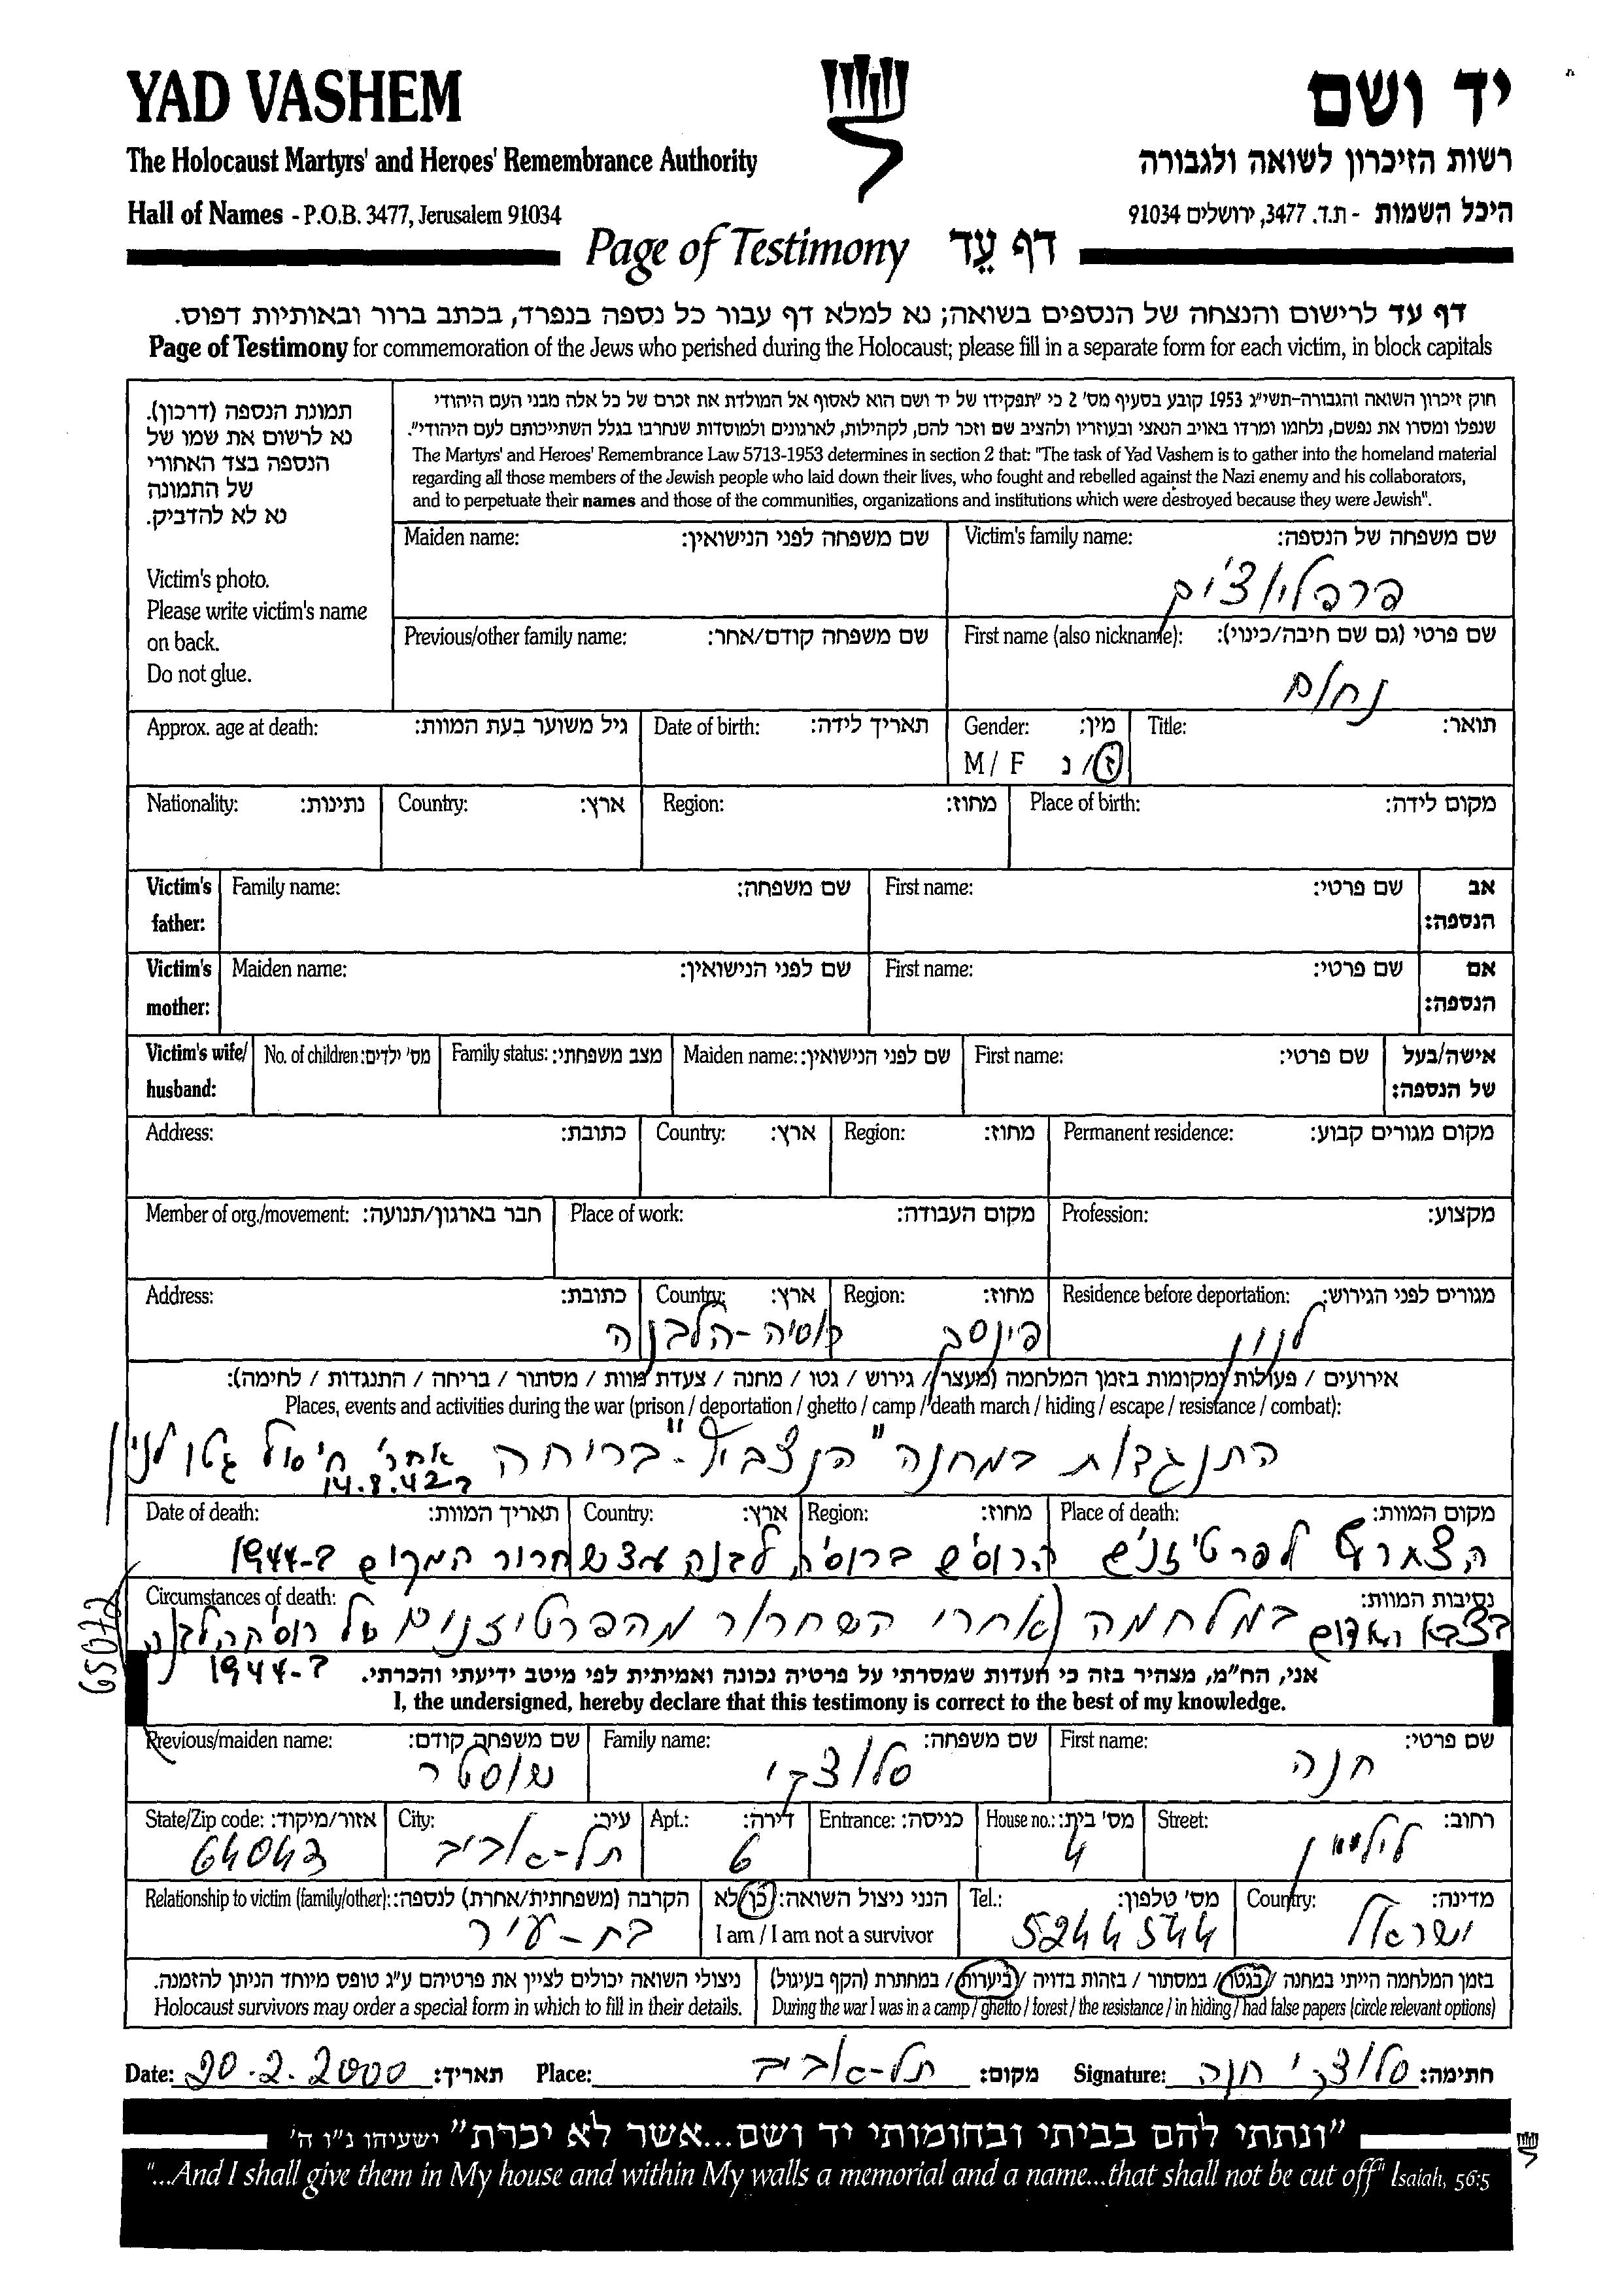 YAD VASHEM
יד ושם
The Holocaust Martyrs' and Heroes' Remembrance Authority
רשות הזיכרון לשואה ולגבורה
Hall of Names - P.O.B. 3477, Jerusalem 91034
היכל השמות - ת.ד. 3477, ירושלים 91034
Page of Testimony דף עֵד
דף עד לרישום והנצחה של הנספים בשואה; נא למלא דף עבור כל נספה בנפרד, בכתב ברור ובאותיות דפוס.
Page of Testimony for commemoration of the Jews who perished during the Holocaust; please fill in a separate form for each victim, in block capitals
תמונת הנספה (דרכון).
נא לרשום את שמו של
הנספה בצד האחורי
של התמונה
נא לא להדביק.
Victim's photo.
Please write victim's name
on back.
Do not glue.
חוק זיכרון השואה והגבורה-תשי"ג 1953 קובע בסעיף מס' 2 כי "תפקידו של יד ושם הוא לאסוף אל המולדת את זכרם של כל אלה מבני העם היהודי
שנפלו ומסרו את נפשם, נלחמו ומרדו באויב הנאצי ובעוזריו ולהציב שם וזכר להם, לקהילות, לארגונים ולמוסדות שנחרבו בגלל השתייכותם לעם היהודי".
The Martyrs' and Heroes' Remembrance Law 5713-1953 determines in section 2 that: "The task of Yad Vashem is to gather into the homeland material
regarding all those members of the Jewish people who laid down their lives, who fought and rebelled against the Nazi enemy and his collaborators,
and to perpetuate their names and those of the communities, organizations and institutions which were destroyed because they were Jewish".
Victim's family name: שם משפחה של הנספה:
פרפליוצ'יק
Maiden name: שם משפחה לפני הנישואין:
First name (also nickname): שם פרטי (גם שם חיבה/כינוי):
נחום
Previous/other family name: שם משפחה קודם/אחר:
Title: תואר:
Gender: מין:
M / F ז / נ
Date of birth: תאריך לידה:
Approx. age at death: גיל משוער בעת המוות:
Place of birth: מקום לידה:
Region: מחוז:
Country: ארץ:
Nationality: נתינות:
Victim's father: אב הנספה:
First name: שם פרטי:
Family name: שם משפחה:
Victim's mother: אם הנספה:
First name: שם פרטי:
Maiden name: שם לפני הנישואין:
Victim's wife/ husband: אישה/בעל של הנספה:
First name: שם פרטי:
Maiden name: שם לפני הנישואין:
Family status: מצב משפחתי:
No. of children: מס' ילדים:
Permanent residence: מקום מגורים קבוע:
Region: מחוז:
Country: ארץ:
Address: כתובת:
Profession: מקצוע:
Place of work: מקום העבודה:
Member of org./movement: חבר בארגון/תנועה:
Residence before deportation: מגורים לפני הגירוש:
לנין
Region: מחוז:
פינסק
Country: ארץ:
רוסיה-הלבנה
Address: כתובת:
אירועים / פעולות ומקומות בזמן המלחמה (מעצר / גירוש / גטו / מחנה / צעדת מוות / מסתור / בריחה / התנגדות / לחימה):
Places, events and activities during the war (prison / deportation / ghetto / camp / death march / hiding / escape / resistance / combat):
התנגדות במחנה בריחה אחרי חיסול גטו לנין
ב-14.8.42
Place of death: מקום המוות:
Region: מחוז:
Country: ארץ:
Date of death: תאריך המוות:
הצטרף לפרטיזנים הרוסים ברוסיה לבנה עד שחרור המקום ב-1944
Circumstances of death: נסיבות המוות:
במלחמה אחרי השחרור מהפרטיזנים של רוסיה הלבנה
בצבא האדום
ב-1944
65072
אני, הח"מ, מצהיר בזה כי העדות שמסרתי על פרטיה נכונה ואמיתית לפי מיטב ידיעתי והכרתי.
I, the undersigned, hereby declare that this testimony is correct to the best of my knowledge.
First name: שם פרטי:
חנה
Family name: שם משפחה:
סלוצקי
Previous/maiden name: שם משפחה קודם:
שוסטר
Street: רחוב:
House no.: מס' בית:
4
Entrance: כניסה:
Apt.: דירה:
6
City: עיר:
תל-אביב
State/Zip code: אזור/מיקוד:
64043
Country: מדינה:
ישראל
Tel.: מס' טלפון:
5244544
הנני ניצול השואה: כן/לא
I am / I am not a survivor
Relationship to victim (family/other): הקרבה (משפחתית/אחרת) לנספה:
בת-עיר
בזמן המלחמה הייתי במחנה / בגטו / במסתור / בזהות בדויה / ביערות / במחתרת (הקף בעיגול)
During the war I was in a camp / ghetto / forest / the resistance / in hiding / had false papers (circle relevant options)
ניצולי השואה יכולים לציין את פרטיהם ע"ג טופס מיוחד הניתן להזמנה.
Holocaust survivors may order a special form in which to fill in their details.
Date: 20.2.2000 תאריך: Place: תל-אביב מקום: Signature: סלוצקי חנה חתימה:
"ונתתי להם בביתי ובחומותי יד ושם...אשר לא יכרת" ישעיהו נ"ו ה'
"...And I shall give them in My house and within My walls a memorial and a name...that shall not be cut off" Isaiah, 56:5